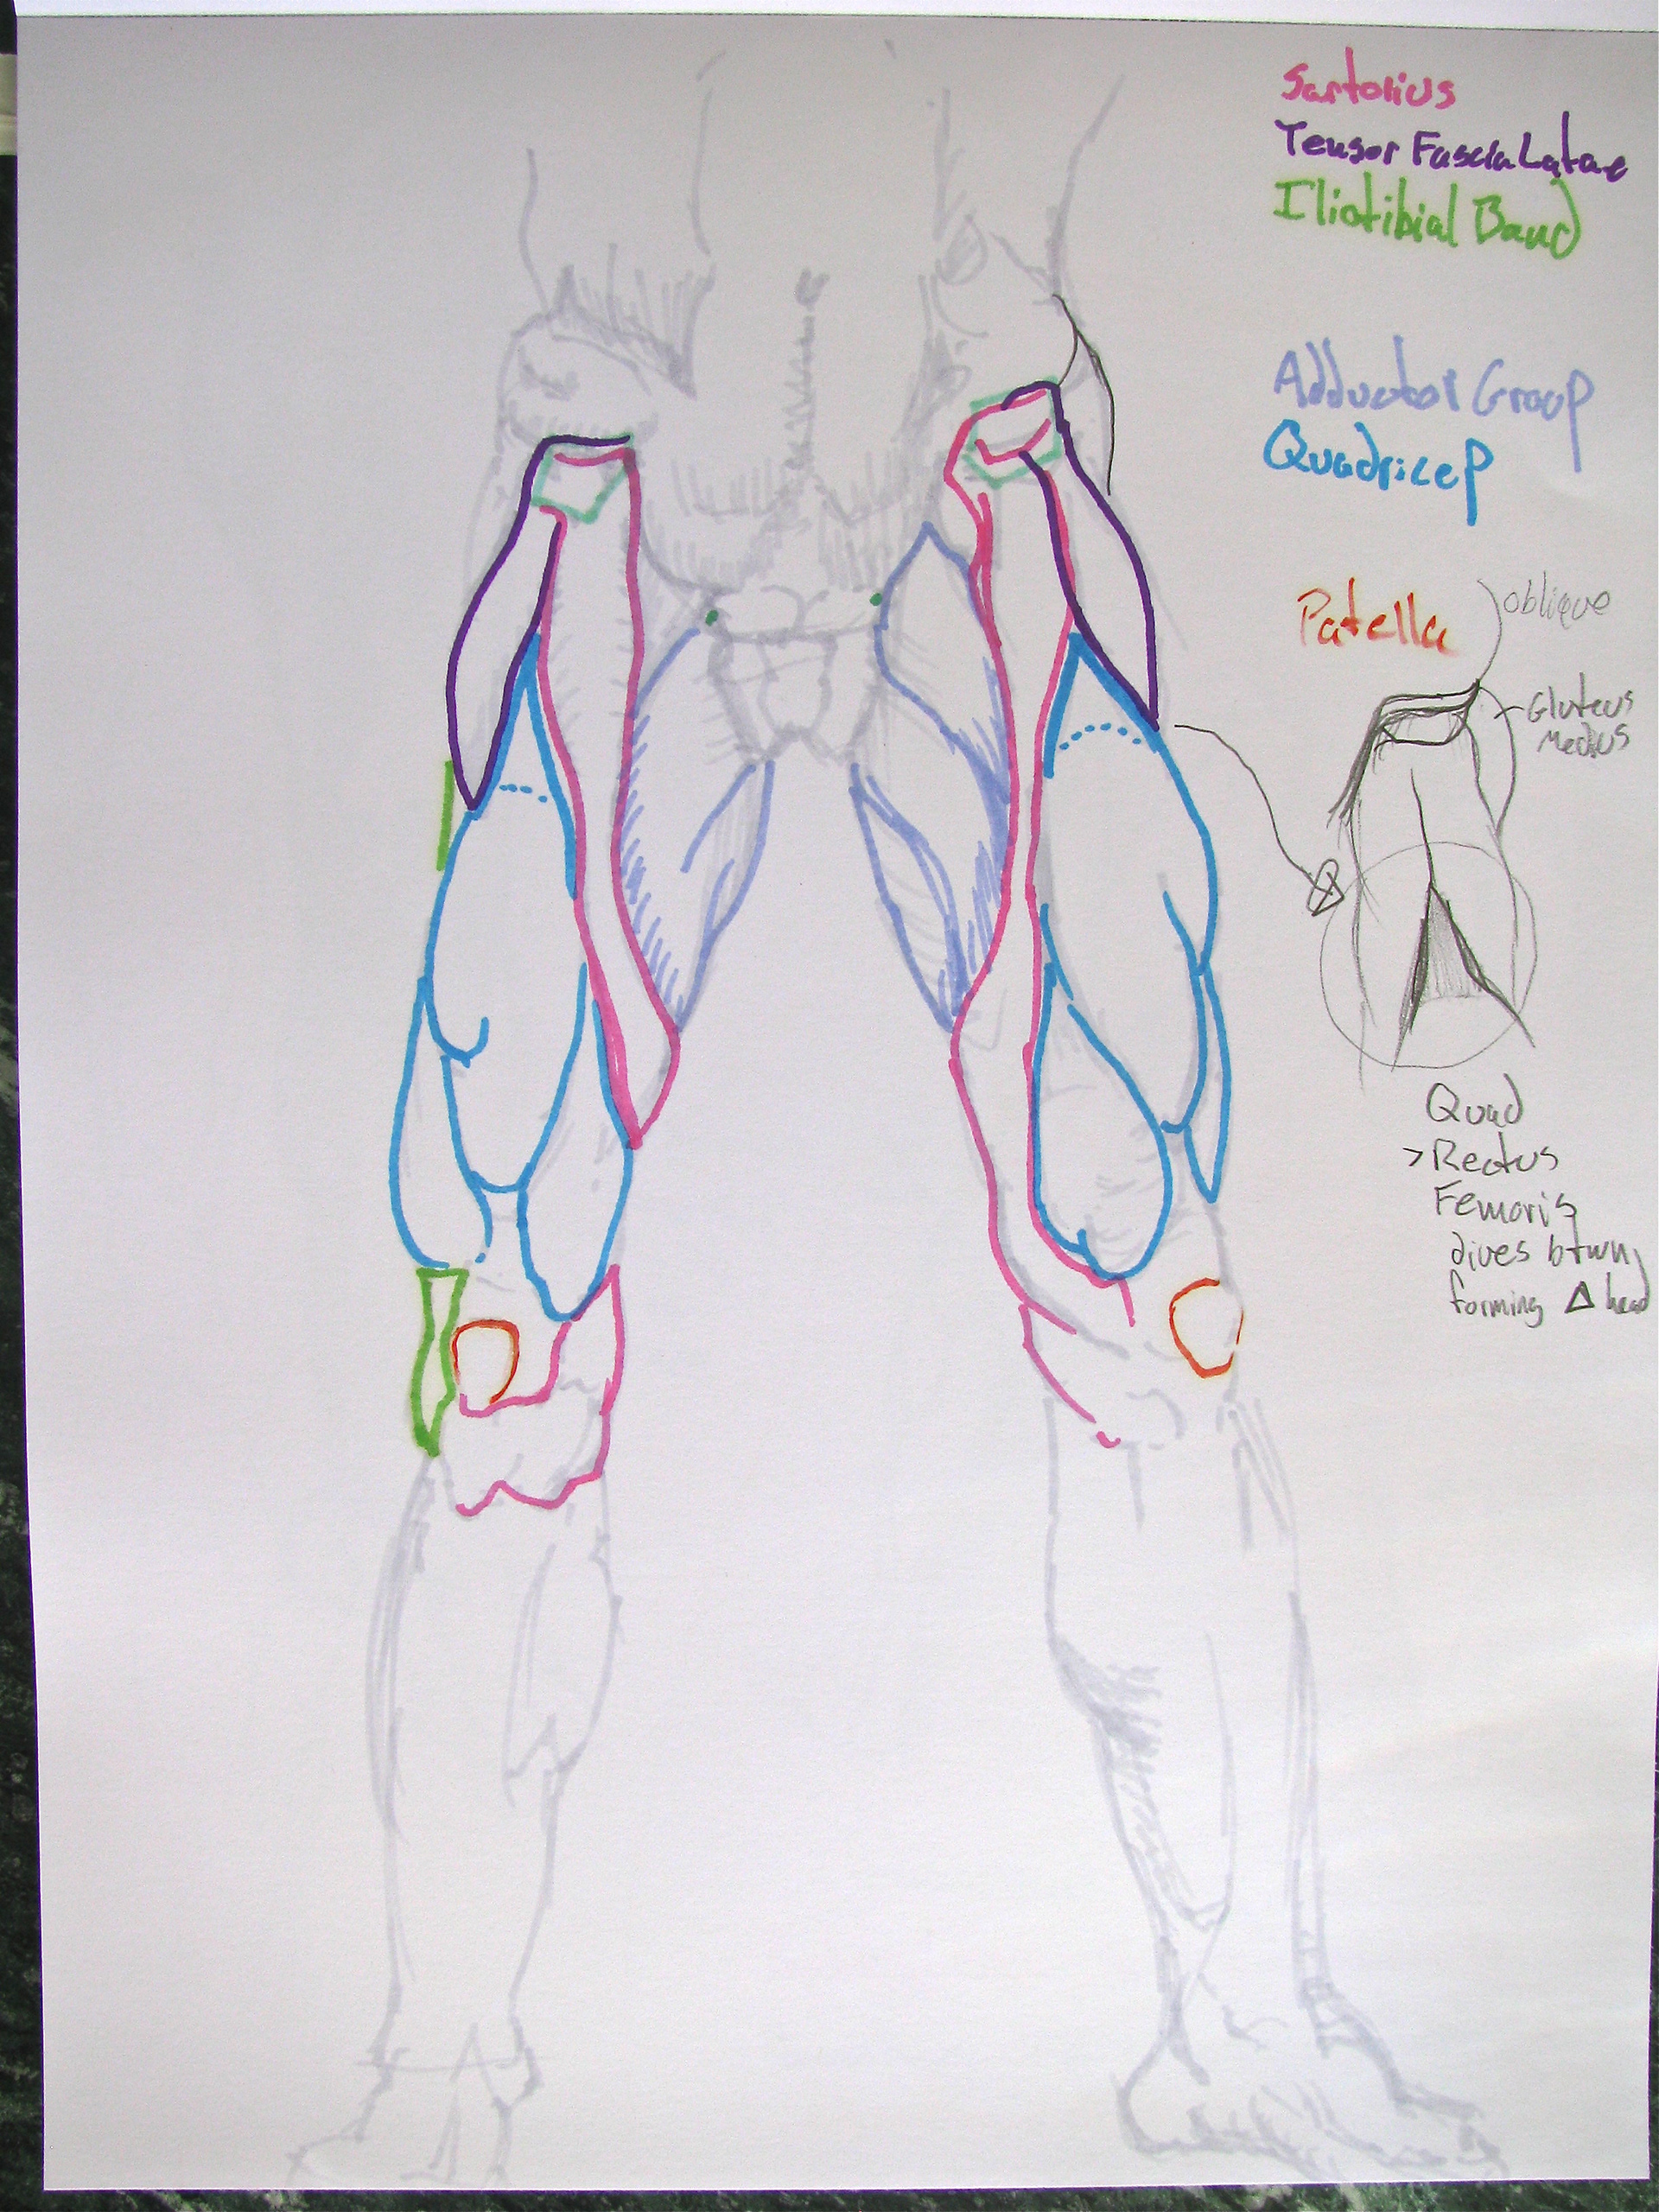 Sartorius
Tensor Fascia Latae
Iliotibial Band
Adductor Group
Quadricep
Patella
oblique
Gluteus
Medius
Quad
> Rectus
Femoris
dives btwn,
forming Δ head